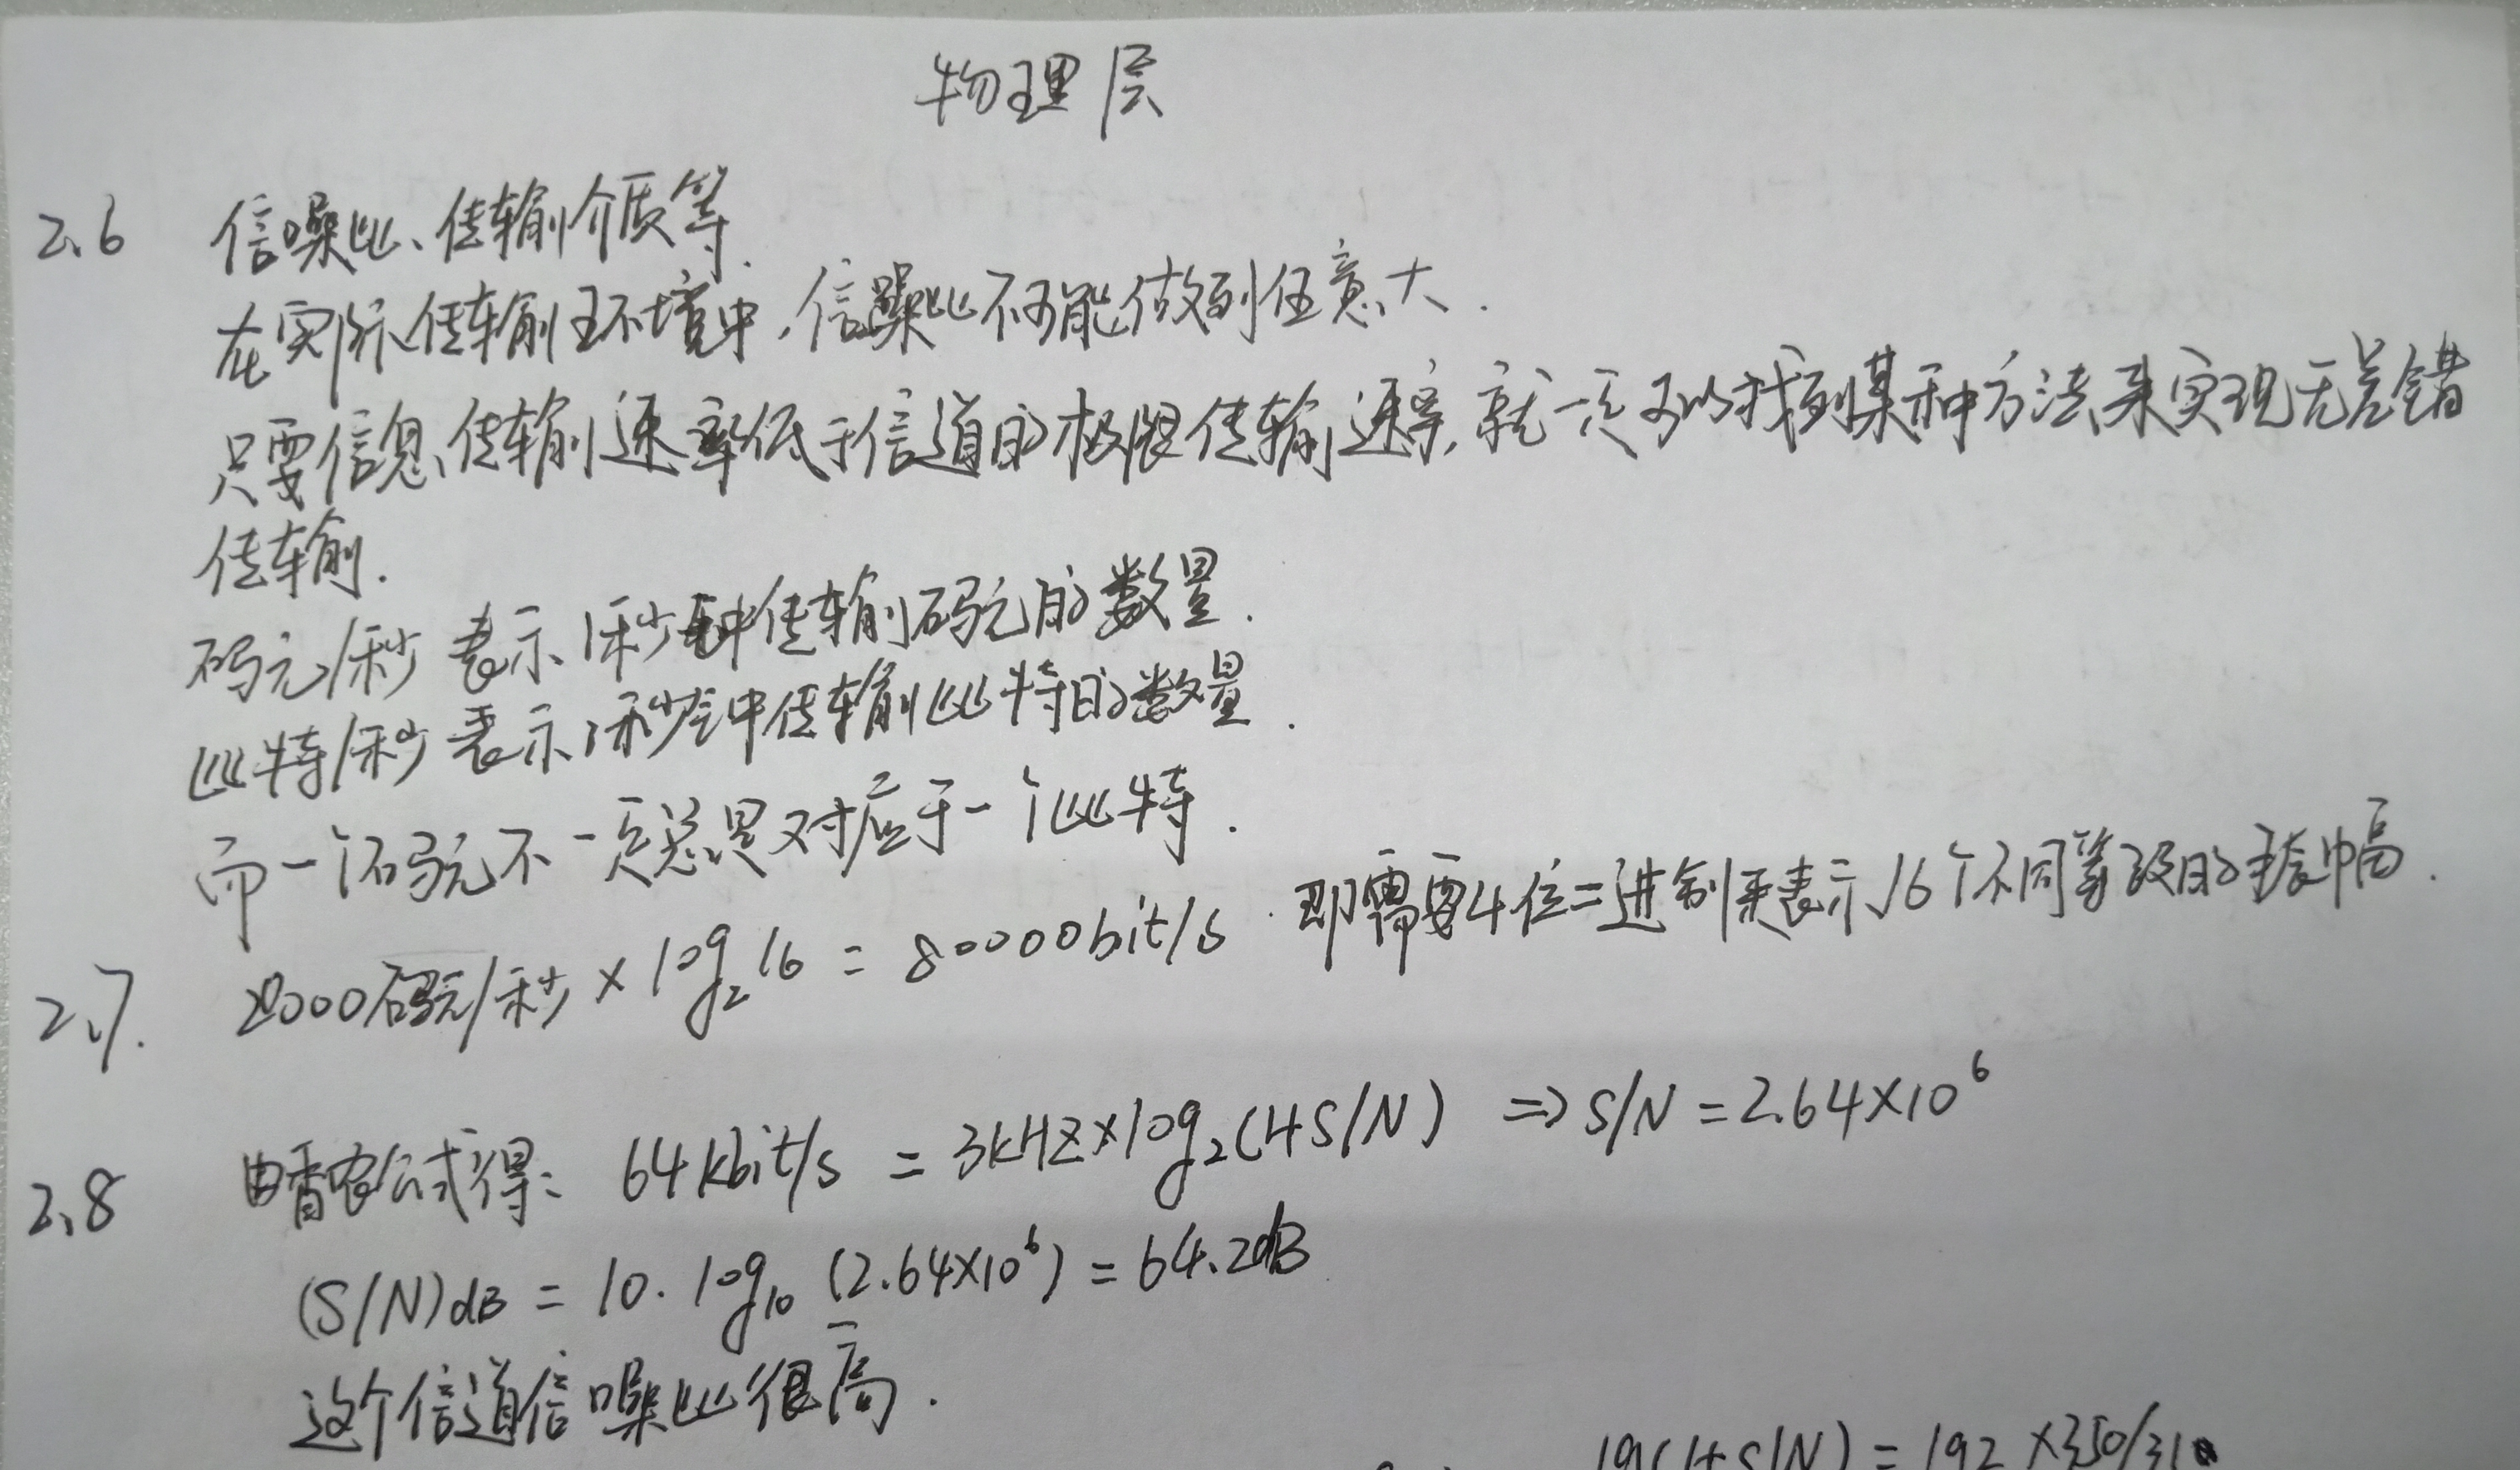 物理层
2.6 信噪比、传输介质等.
在实际传输环境中,信噪比不可能做到任意大.
只要信息传输速率低于信道的极限传输速率,就一定可以找到某种方法来实现无差错
传输.
码元/秒 表示1秒钟传输码元的数量.
比特/秒 表示1秒钟传输比特的数量.
而一个码元不一定总是对应于一个比特.
2.7. 20000码元/秒×log₂16 = 80000bit/s. 即需要4位二进制来表示16个不同等级的振幅.
2.8 由香农公式得: 64kbit/s = 3kHZ×log₂(1+S/N) ⇒ S/N = 2.64×10⁶
(S/N)dB = 10·log₁₀(2.64×10⁶) = 64.2dB
这个信道信噪比很高.
lg(1+S/N) = 192×350/310